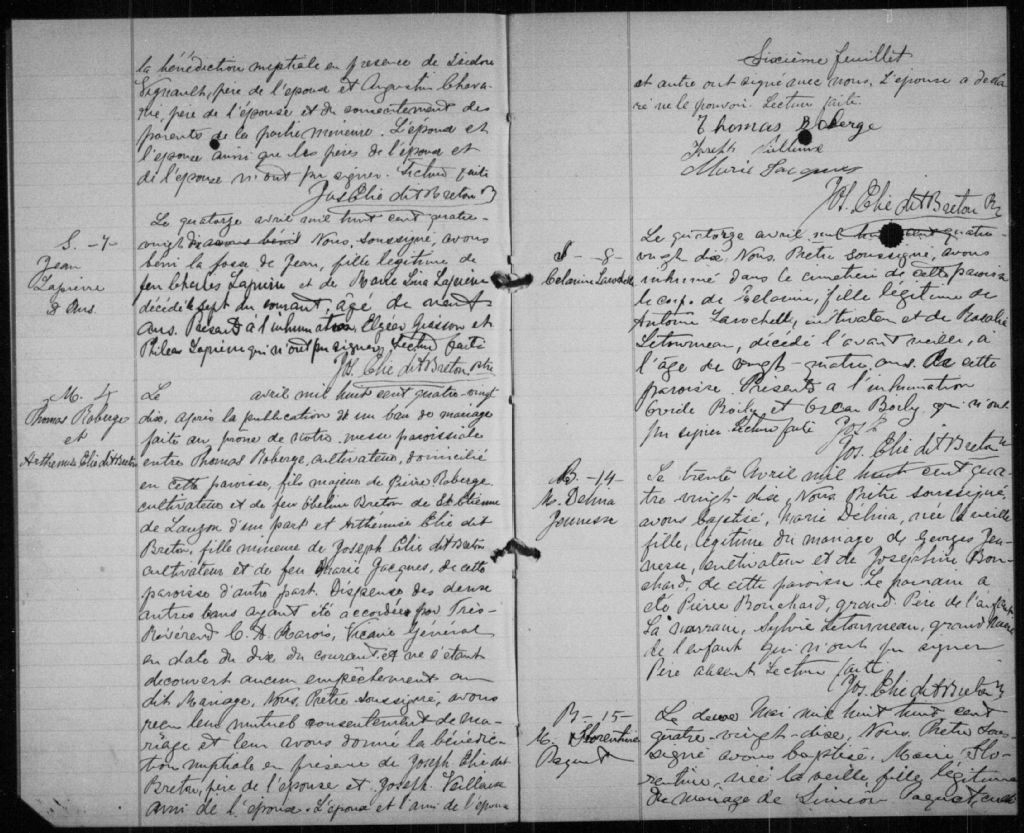 la bénédiction nuptiale en présence de Isidore
Vignault, père de l'époux et Augustin
père de l'épouse et du consentement des
parents de la partie mineure. L'époux et
l'épouse ainsi que les pères de l'époux et
de l'épouse n'ont pu signer. Lecture faite
Jos Elie dit Breton
Le quatorze avril mil huit cent quatre-
vingt dix Nous, soussigné, avons
S. - 7 -
Jean
Lapierre
8 Ans.
béni la fosse de Jean, fille légitime de
feu Charles Lapierre et de Marie Lapierre
décédé le sept du courant, âgé de
ans. Présents à l'inhumation, Elzéar et
Philéas Lapierre qui n'ont pu signer, Lecture faite
Jos. Elie dit Breton ptre
M. 4
Thomas Roberge
et
Arthémise Elie dit Breton
Le avril mil huit cent quatre-vingt
dix, après la publication d'un ban de mariage
faite au prône de notre messe paroissiale
entre Thomas Roberge, cultivateur, domicilié
en cette paroisse, fils majeur de Pierre Roberge
cultivateur et de feu Obeline Breton de St Etienne
de Lauzon d'une part et Arthémise Elie dit
Breton, fille mineure de Joseph Elie dit Breton
cultivateur et de feu Marie Jacques, de cette
paroisse d'autre part. Dispense des deux
autres bans ayant été accordée par Très-
Révérend C. A. Marois, Vicaire Général
en date du dix du courant et ne s'étant
découvert aucun empêchement au
dit Mariage, Nous, Prêtre soussigné, avons
reçu leur mutuel consentement de ma-
riage et leur avons donné la bénédic-
tion nuptiale en présence de Joseph Elie dit
Breton, père de l'épouse et Joseph Veilleux
ami de l'époux. L'époux et l'ami de l'époux
Sixième feuillet
et autre ont signé avec nous. L'épouse a décla-
ré ne le pouvoir. Lecture faite.
Thomas Roberge
Joseph Veilleux
Marie Jacques
Jos. Elie dit Breton
S - 8 -
Célanire Larochelle
Le quatorze avril mil huit cent quatre-
vingt dix, Nous, Prêtre soussigné, avons
inhumé dans le cimetière de cette paroisse
le corps de Célanire, fille légitime de
Antoine Larochelle, cultivateur et de Rosalie
Letourneau, décédé l'avant veille, à
l'âge de vingt-quatre ans. De cette
paroisse. Présents à l'inhumation
Ovide Boily et Oscar Boily, qui n'ont
pu signer. Lecture faite
Jos. Elie dit Breton
B - 14 -
M. Delina
Jeunesse
Le trente Avril mil huit cent qua-
tre vingt-dix, Nous, Prêtre soussigné,
avons baptisé, Marie Délina, née la veille
fille, légitime du mariage de Georges Jeu-
nesse, cultivateur et de Joséphine Bou-
chard, de cette paroisse. Le parrain a
été Pierre Bouchard, grand Père de l'enfant
La marraine, Sylvie Letourneau, grand Mère
de l'enfant qui n'ont pu signer
Père absent Lecture faite
Jos. Elie dit Breton
B - 15 -
M. Florentine
Paquet
Le deux Mai mil huit huit cent
quatre-vingt-dix, Nous, Prêtre sous-
signé avons baptisé, Marie Flo-
rentine, née la veille, fille légitime
du mariage de Siméon Paquet,